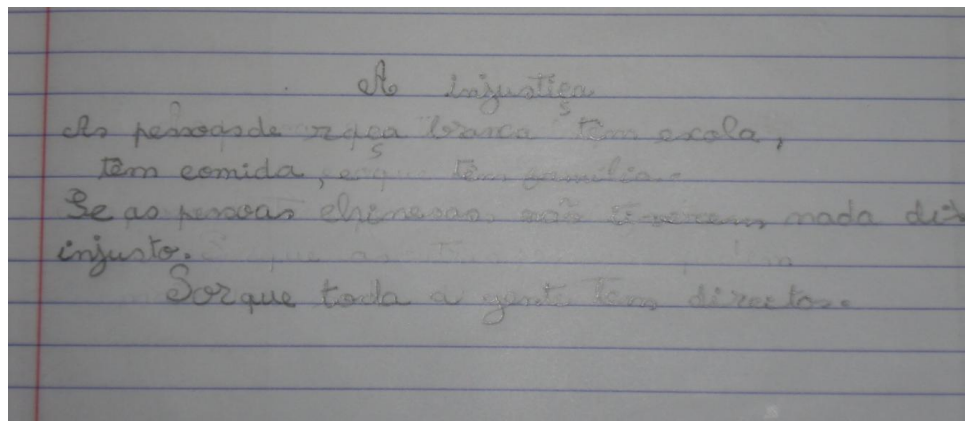 A injustiça
As pessoas de raça branca têm escola,
têm comida, e têm família.
Se as pessoas chinesas não tiverem nada diz
injusto.
Porque toda a gente tem directos.